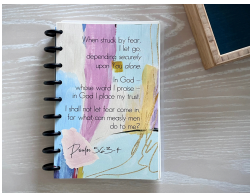 When struck by fear,
I let go
depending securely
upon You alone
In God –
whose word I praise –
in God I place my trust.
I shall not let fear come in,
for what can measly men
do to me?
Psalm 56:3-4